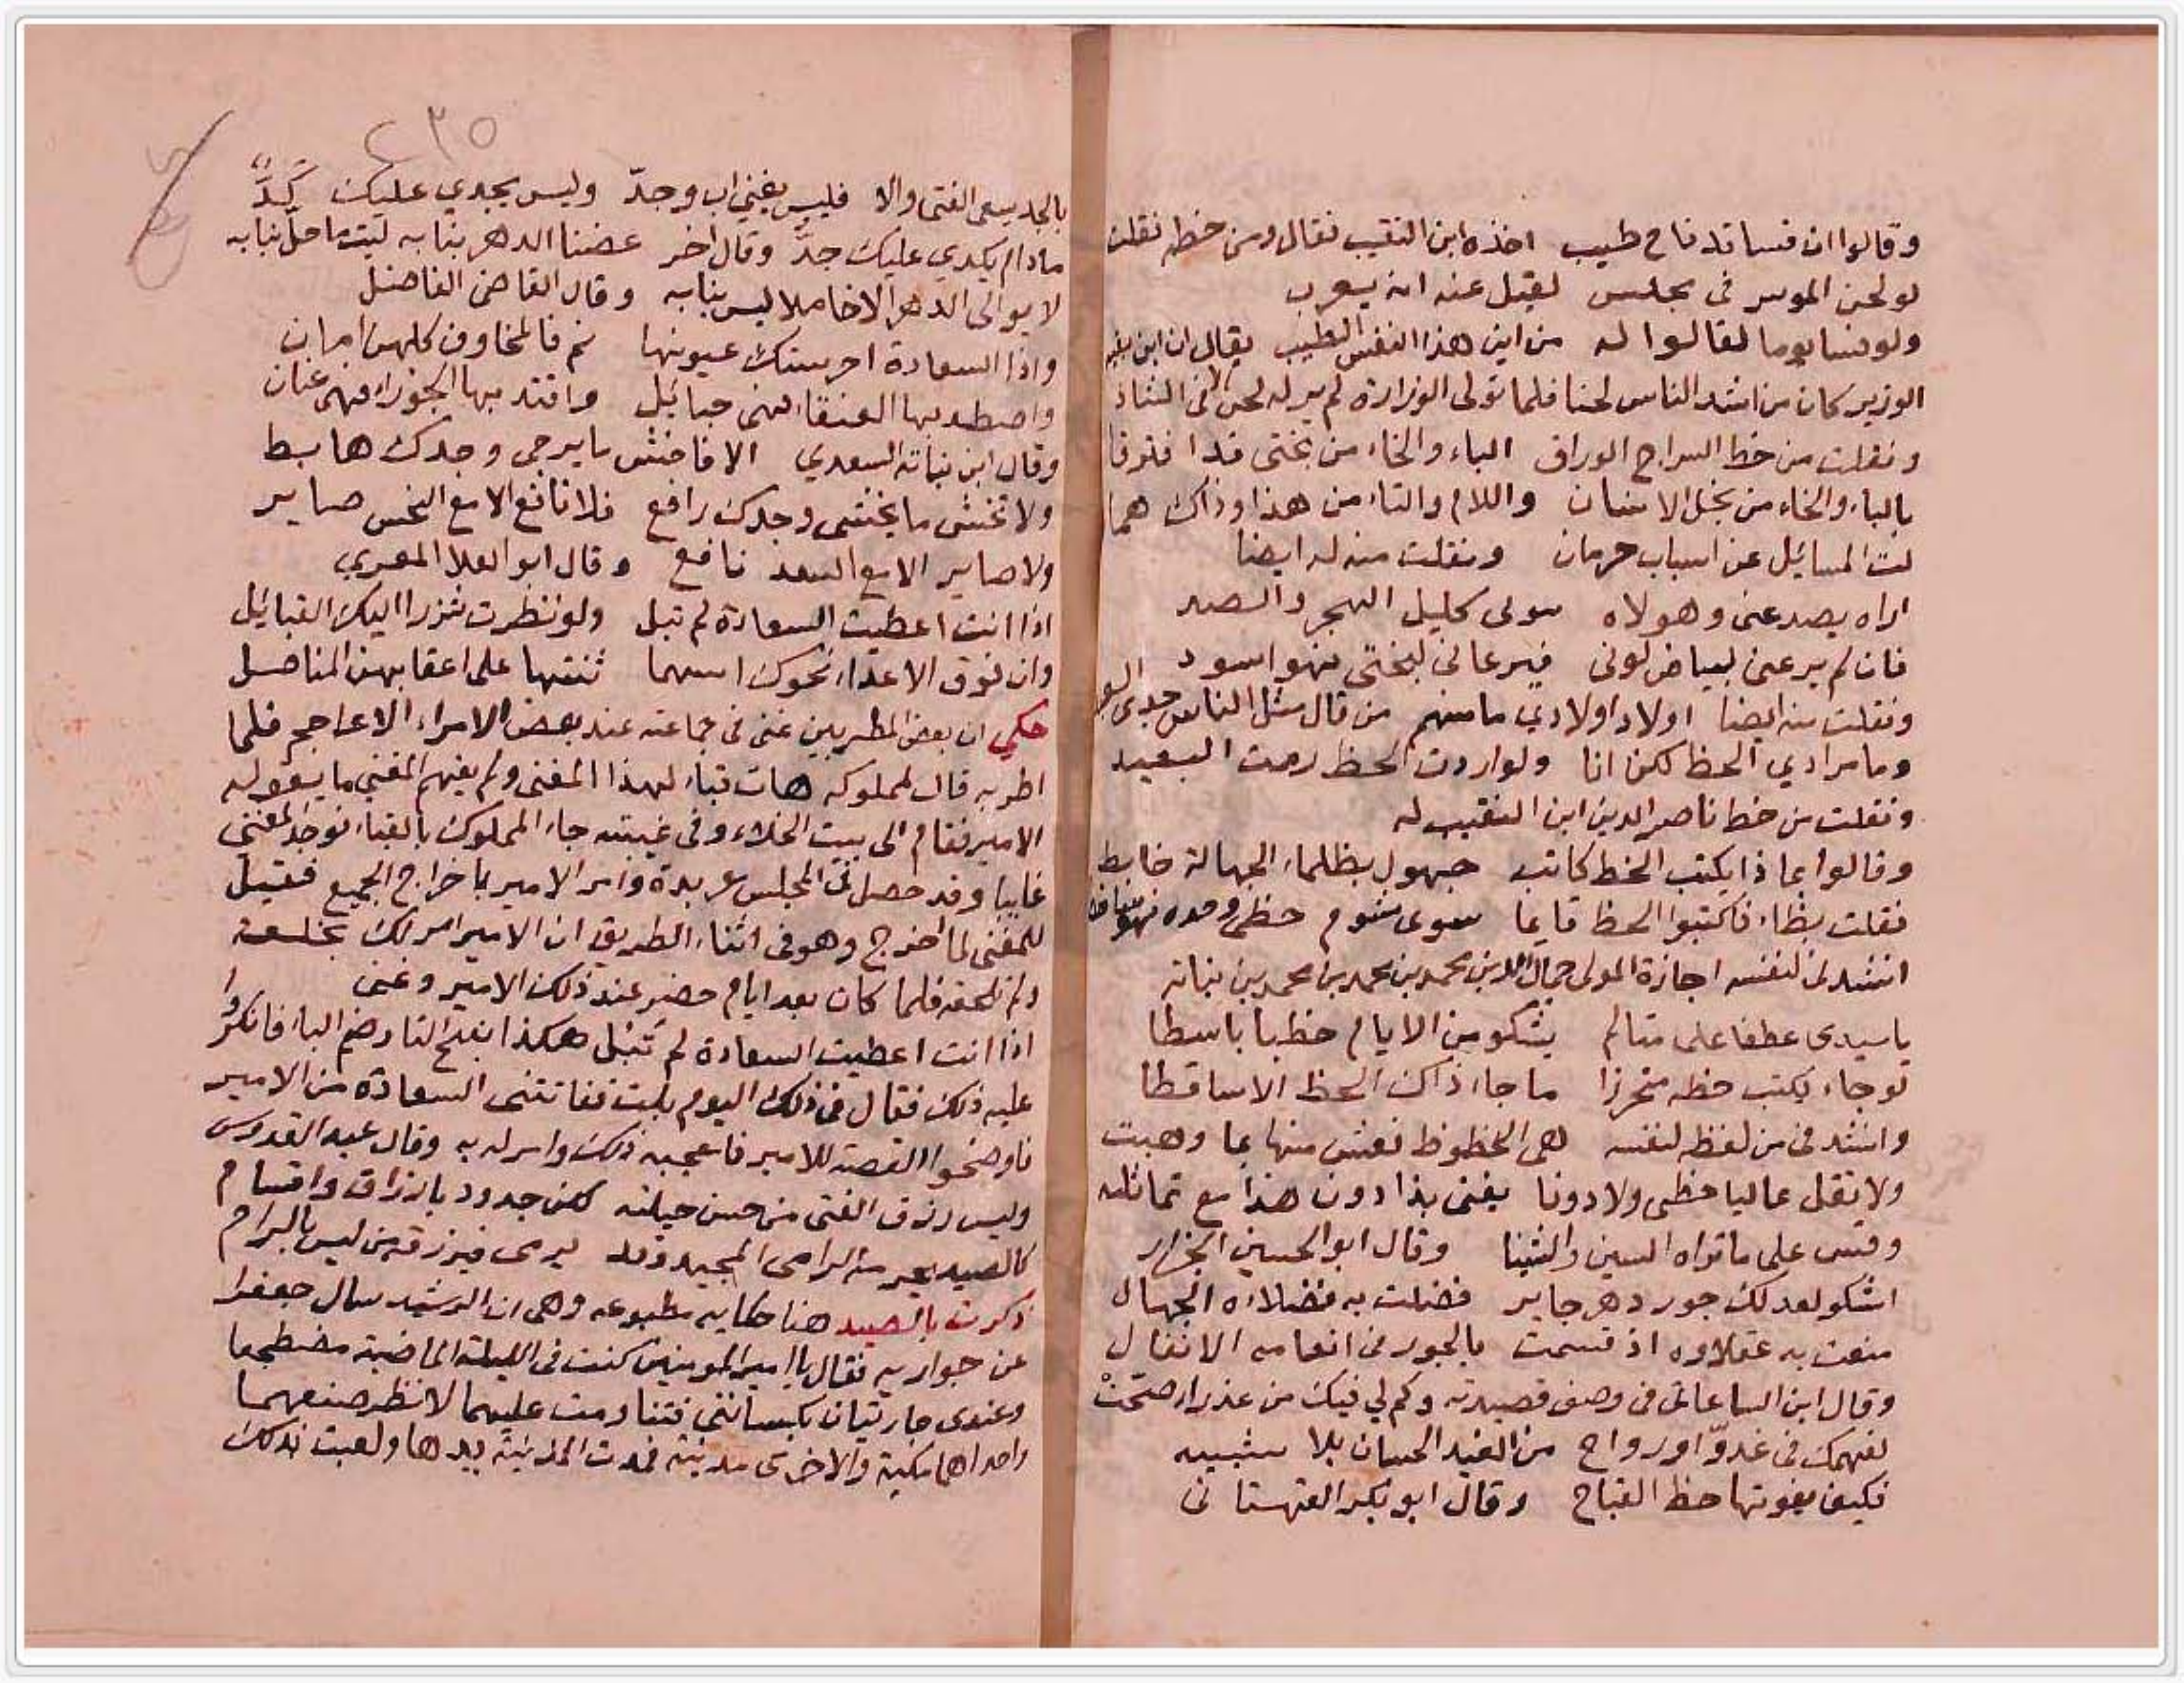 وقالوا ان فسا تد فاح طيب اخذه ابن النقيب فقال ومن خطه نقلت
لو لحن الموسر فى مجلس لقيل عنه انه يعرب
ولو فسا يوما لقالوا له من اين هذا النفس الطيب يقال ان ابن بقيه
الوزير كان من اشد الناس لحنا فلما تولى الوزارة لم ير له لحن الا فى الشاذ
ونقلت من خط السراج الوراق الباء والخاء من بختى قدا فترقا
بالباء والخاء من بخل الانسان واللام والتاء من هذا وذاك هما
لت المسائل عن اسباب حرمان ونقلت منه له ايضا
اراه يصد عنى وهو لاه سولى كليل الهجر والصد
فان لم ير عنى لبياض لونى فيرعانى لبختى فهو اسود
ونقلت منه ايضا اولاد اولادي ما منهم من قال مثل الناس جدى
وما مرادي الحظ لكن انا ولو اردت الحظ رمت البعيد
ونقلت من خط ناصر الدين ابن النقيب له
وقالوا بما ذا يكتب الخط كاتب جهول بظلماء الجهالة خابط
فقلت بظاء فاكتبوا الحظ قايما سوى شوم حظى وحده فهو ساقط
انشدنى لنفسه اجازة المولى جمال الدين محمد بن محمد بن محمد بن نباته
ياسيدى عطفا على متالم يشكو من الايام خطبا باسطا
لو جاء يكتب حظه متحرزا ما جاء ذاك الحظ الا ساقطا
وانشدنى من لفظه لنفسه هى الحظوظ فعش منها بما وهبت
ولا تقل عاليا حظى ولا دونا يغنى بذا دون هذا مع تماثله
وقس على ما تراه السين والشينا وقال ابو الحسين الجزار
اشكو لعدلك جور دهر جاير فضلت به فضلاءه الجهال
منعت به عقلاوه اذ قسمت بالجور فى انعامه الانفال
وقال ابن الساعاتى فى وصف قصيدته وكم لي فيك من عذراء صحت
لفهمك فى غدوّ او رواح من الغيد الحسان بلا شبيه
فكيف يفوتها حظ القباح وقال ابو بكر القهستانى
٢٣٥
بالجد يسعى الفتى والا فليس يغني اب وجدّ وليس يجدي عليك كدّ
مادام يكدي عليك جدّ وقال اخر عضنا الدهر بنابه ليت ما حل بنا به
لا يوالى الدهر الا خاملا ليس بنابه وقال القاضى الفاضل
واذا السعادة احرستك عيونها نم فالمخاوف كلهن امان
واصطد بها العنقاء فهى حبائل واقتد بها الجوزاء فهى عنان
وقال ابن نباته السعدي الا فاخش ما يرجى وجدك هابط
ولا تخش ما يخشى وجدك رافع فلا نافع الا مع النحس ضاير
ولا ضاير الا مع السعد نافع وقال ابو العلا المعري
اذا انت اعطيت السعادة لم تبل ولو نظرت شزرا اليك القبايل
وان فوق الاعداء نحوك اسهما ثنتها على اعقابهن المناصل
حكي ان بعض المطربين غنى فى جماعته عند بعض الامراء الاعاجم فلما
اطربه قال لمملوكه هات قباء لهذا المغنى ولم يفهم المغني ما يقوله
الامير فقام الى بيت الخلاء وفى غيبته جاء المملوك بالقباء فوجد المغني
غايبا وقد حصل فى المجلس عربدة وامر الامير باخراج الجميع فقيل
للمغنى لما اخرج وهو فى اثناء الطريق ان الامير امر لك بخلعة
ولم تلحقه فلما كان بعد ايام حضر عند ذلك الامير وغنى
اذا انت اعطيت السعادة لم تبل هكذا بفتح التا وضم البا فانكروا
عليه ذلك فقال فى ذلك اليوم بلت ففاتتنى السعادة من الامير
فاوضحوا القصة للامير فاعجبه ذلك وامر له به وقال عبد القدوس
وليس رزق الفتى من حسن حيلته لكن جدود بارزاق واقسام
كالصيد يحرمه الرامى المجيد وقد يرمى فيرزقه من ليس بالرام
ذكرت بالصيد هنا حكايه مطبوعه وهى ان الرشيد سال جعفرا
عن جواريه فقال يا امير المومنين كنت فى الليلة الماضية مضطجعا
وعندى جاريتان يكبسانني فتناومت عليهما لانظر صنعهما
واحداهما مكية والاخرى مدنية فمدت المدنية يدها ولعبت بذلك